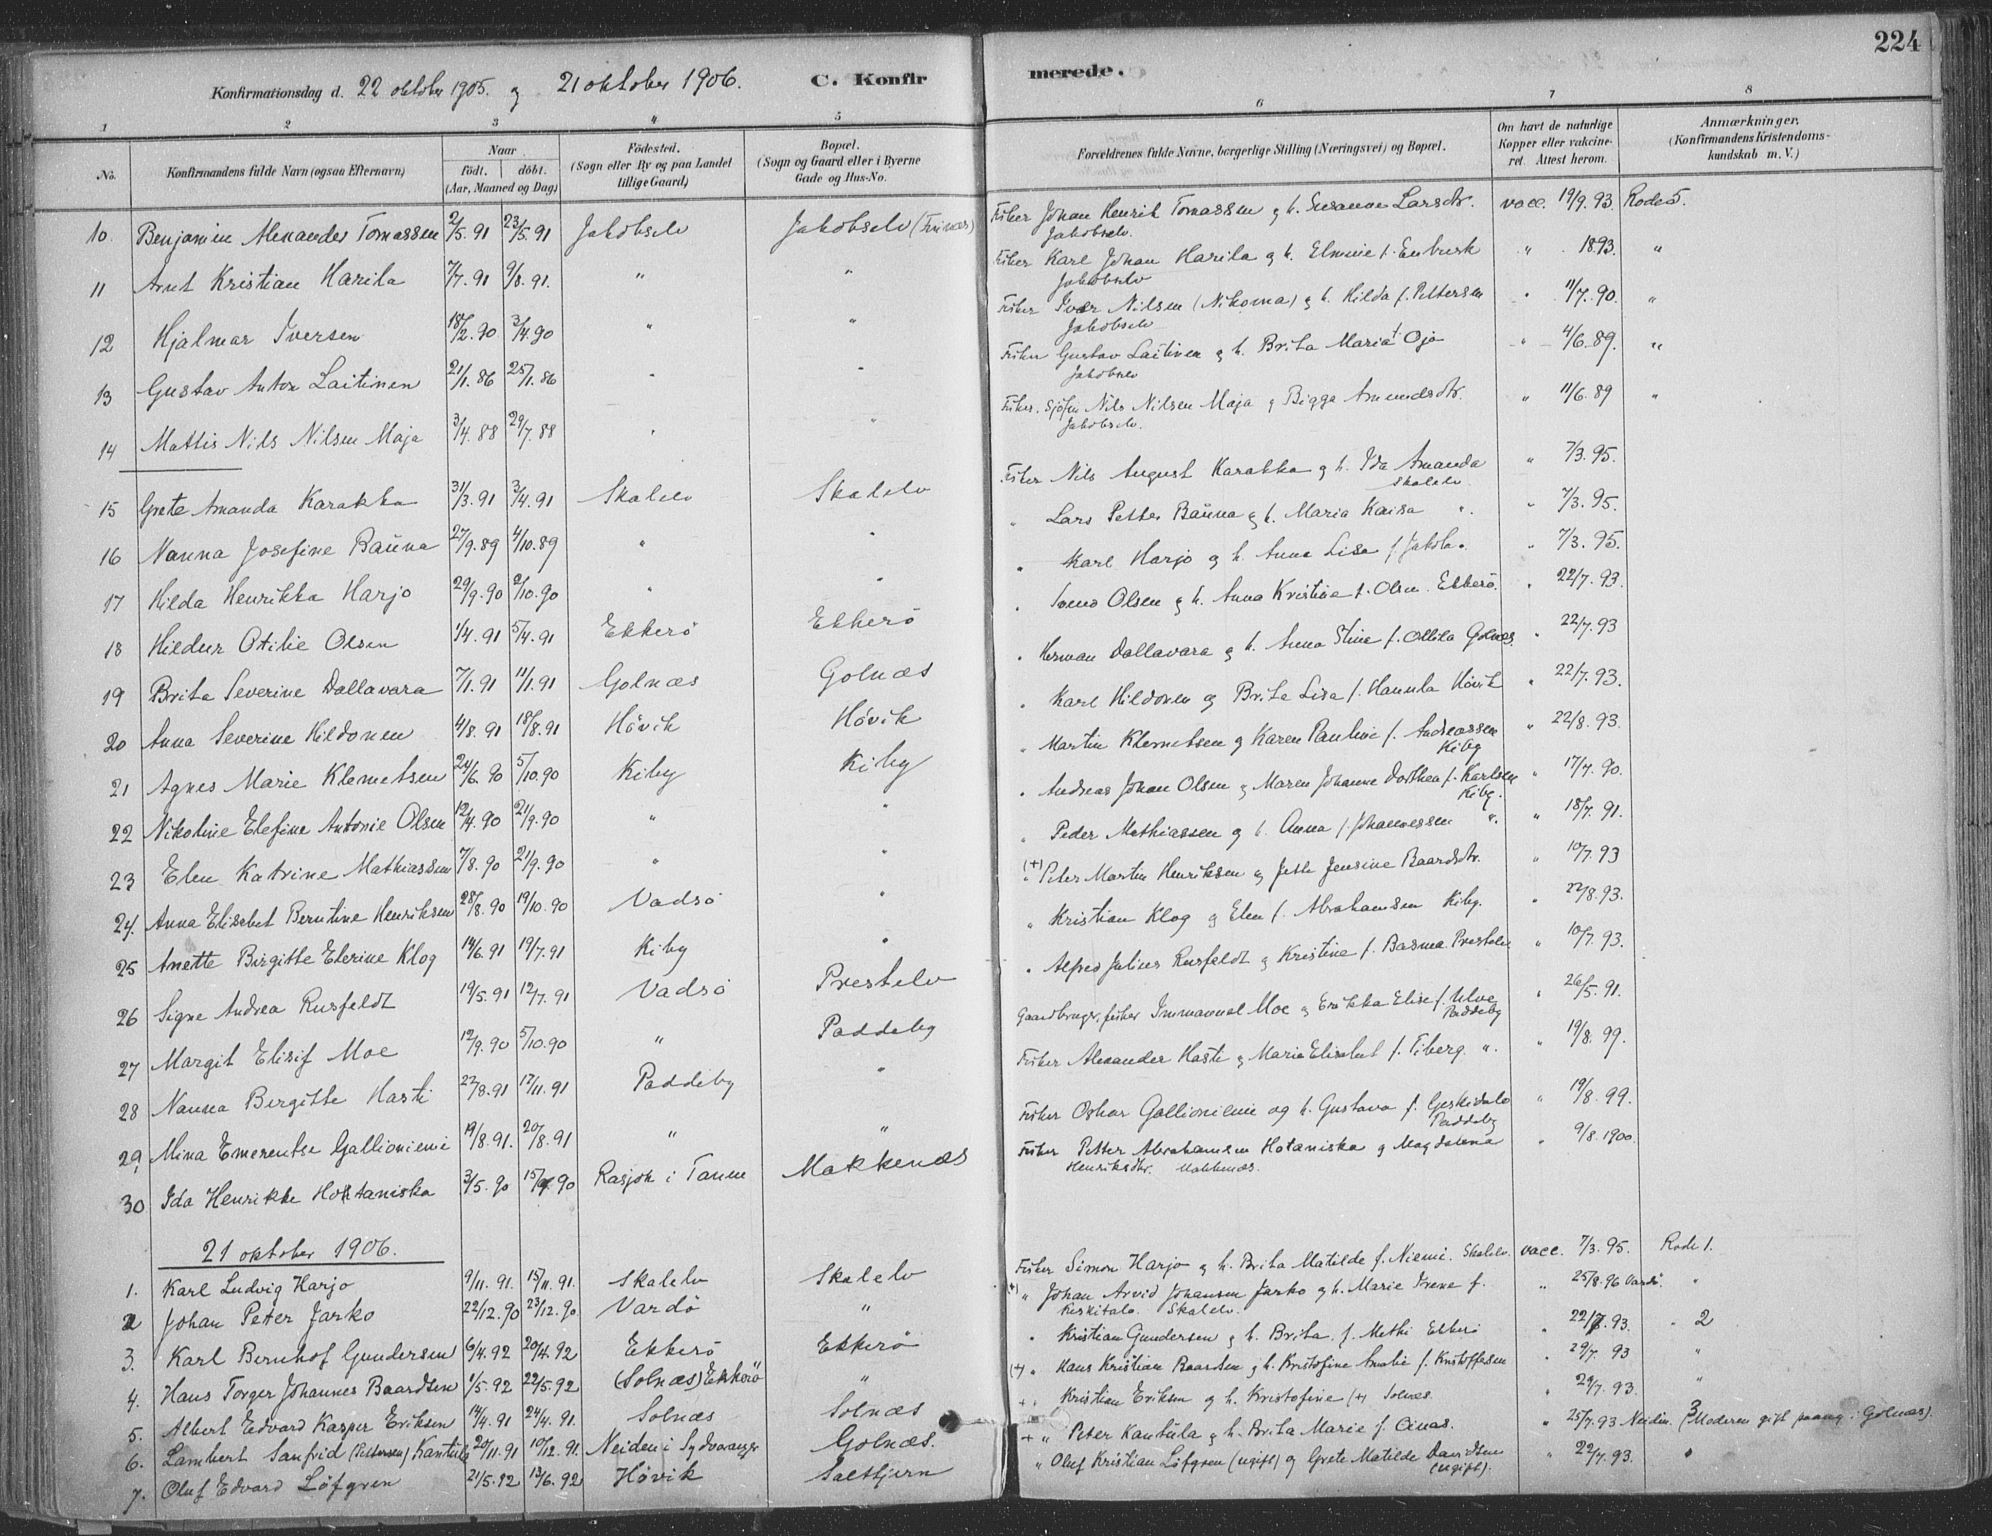 224
Konfirmationsdag d. 22 oktober 1905. og 21 oktober 1906. C. Konfirmerede.
1 2 3 4 5 6 7 8
No. Konfirmandens fulde Navn (ogsaa Efternavn) Naar født. døbt. (Aar, Maaned og Dag) Fødested. (Sogn eller By og paa Landet tillige Gaard) Bopæl. (Sogn og Gaard eller i Byerne Gade og Hus-No. Forældrenes fulde Navne, borgerlige Stilling (Næringsvei) og Bopæl. Om havt de naturlige Kopper eller vakcineret. Attest herom. Anmærkninger. (Konfirmandens Kristendomskundskab m. V.)
10. Benjamin Alexander Tomassen 2/5.91 23/5.91 Jakobselv Jakobselv Fisker Johan Henrik Tomassen og h. Susanne Larsdtr. Jakobselv. vacc. 19/9.93. Rode 5.
11 Arnt Kristian Harila 7/7.91 9/8.91. " " Fisker Karl Johan Harila og h. Elmine f. Enbusk Jakobselv " 1893. "
12 Hjalmar Iversen 18/2.90 3/4.90 " " Fisker Iver Nilsen (Nikoma) og h. Hilda f. Pettersen Jakobselv " 11/7.90. "
13 Gustav Anton Laitinen 21/1.86 25/1.86 " " Fisker Gustav Laitinen og h. Brita Maria Ojo Jakobselv " 4/6.89. "
14 Mattis Nils Nilsen Maja 3/4.88 29/7.88 " " Fisker. Sjöfin Nils Nilsen Maja og Bigga Amundsdtr. Jakobselv. " 11/6.89 "
15 Grete Amanda Karakka 31/3.91 3/4.91 Skalelv Skalelv Fisker Nils August Karakka og h. Ida Amanda Skalelv. " 7/3.95.
16 Nanna Josefine Bauna 27/9.89 4/10.89 " " " Lars Petter Bauna og h. Maria Kaisa " " 7/3.95.
17 Hilda Henrikka Harjo 29/9.90 2/10.90 " " " Karl Harjo og h. Anna Lisa f. Jakola " 7/3.95.
18 Hildur Otilie Olsen 1/4.91 5/4.91 Ekkerö Ekkerö " Svend Olsen og h. Anna Kristine f. Olsen Ekkerö. " 22/7.93.
19 Brita Severine Dallavara 7/1.91 11/1.91 Golnæs Golnæs " Herman Dallavara og h. Anna Stine f. Ollila Golnæs. " 22/7.93
20 Anna Severine Hildonen 4/8.91 18/8.91 Hövik Hövik " Karl Hildonen og Brita Lisa f. Hannula Hövik " 22/7.93.
21 Agnes Marie Klemetsen 24/6.90 5/10.90 Kiby Kiby " Martin Klemetsen og Karen Pauline f. Andreassen Kiby " 22/8.93.
22 Nikoline Elefine Antonie Olsen 12/4.90 21/9.90 " " " Andreas Johan Olsen og Maren Johanne Dorthea f. Karlsen Kiby. " 17/7.90.
23 Elen Katrine Mathiassen 7/8.90 21/9.90 " " " Peder Mathiassen og h. Anna f. Johannessen " " 18/7.91.
24. Anna Elisabet Berntine Henriksen 28/8.90 19/10.90 Vadsö " (+) Peter Martin Henriksen og Jette Jensine Baardsdtr. " 10/7.93
25 Anette Birgitte Elerine Klog 14/6.91 19/7.91 Kiby " " Kristian Klog og Elen f. Abrahamsen Kiby. " 22/8.93.
26 Signe Andrea Rusfeldt 19/5.91 12/7.91 Vadsö Prestelv " Alfred Julius Rusfeldt og Kristine f. Basma Prestelv " 10/7.93.
27 Margit Elisif Moe 12/9.90 5/10.90 " Paddeby Gaardbruger, fisker Immanuel Moe og Erikka Elise f. Ulve Paddeby " 26/5.91.
28 Nanna Birgitte Hasti 22/8.91 12/11.91 Paddeby " Fisker Alexander Hasti og Maria Elisabet f. Tiberg. " " 19/8.99.
29, Mina Emerentse Gallioniemi 19/8.91. 20/8.91 " " Fisker Oskar Gallioniemi og h. Gustava f. Geskidalo Paddeby " 19/8.99.
30 Ida Henrikke Hotaniska 3/5.90 15/9.90 Rasjok i Tanen Makkenæs Fisker Petter Abrahamsen Hotaniska og Magdalena Henriksdtr. Makkenæs. " 9/8.1900.
21 oktober 1906.
1. Karl Ludvig Harjo 9/11.91. 15/11.91. Skalelv Skalelv Fisker Simon Harjo og h. Brita Matilde f. Niemi. Skalelv. vacc. 7/3.95. Rode 1.
2 Johan Peter Jarko 22/12.90 23/12.90 Vardö " (+) " Johan Arvid Johansen Jarko og h. Marie Irene f. Keskitalo. Skalelv. " 25/8.96 Vardö. "
3. Karl Bernhof Gundersen 6/4.92 20/4.92 Ekkerö Ekkerö " Kristian Gundersen og h. Brita f. Methi Ekkerö " 22/7.93. " 2
4. Hans Torger Johannes Baardsen 1/5.92 22/5.92 (Solnæs) Ekkerö " (+) " Hans Kristian Baardsen og h. Kristofine Amalie f. Kristoffersen " 29/7.93 "
5. Albert Edvard Kasper Eriksen 14/4.91 24/4.91. Solnæs Solnæs + " Kristian Eriksen og h. Kristofine (+) Solnæs. " 29/7.93. "
6. Lambert Sanfrid (Pettersen) Kantula 20/11.91 10/12.91. Neiden i Sydvaranger Golnæs. + " Peter Kantula og h. Brita Marie f. Cinas. " 25/7.93 Neiden. 3 (Moderen gift paany i Golnæs).
7. Oluf Edvard Löfgren 21/5.92 12/6.92 Hövik Saltbjern " Oluf Kristian Löfgren (ugift) og Grete Matilde Davidsen (ugift). " 22/7.93. "